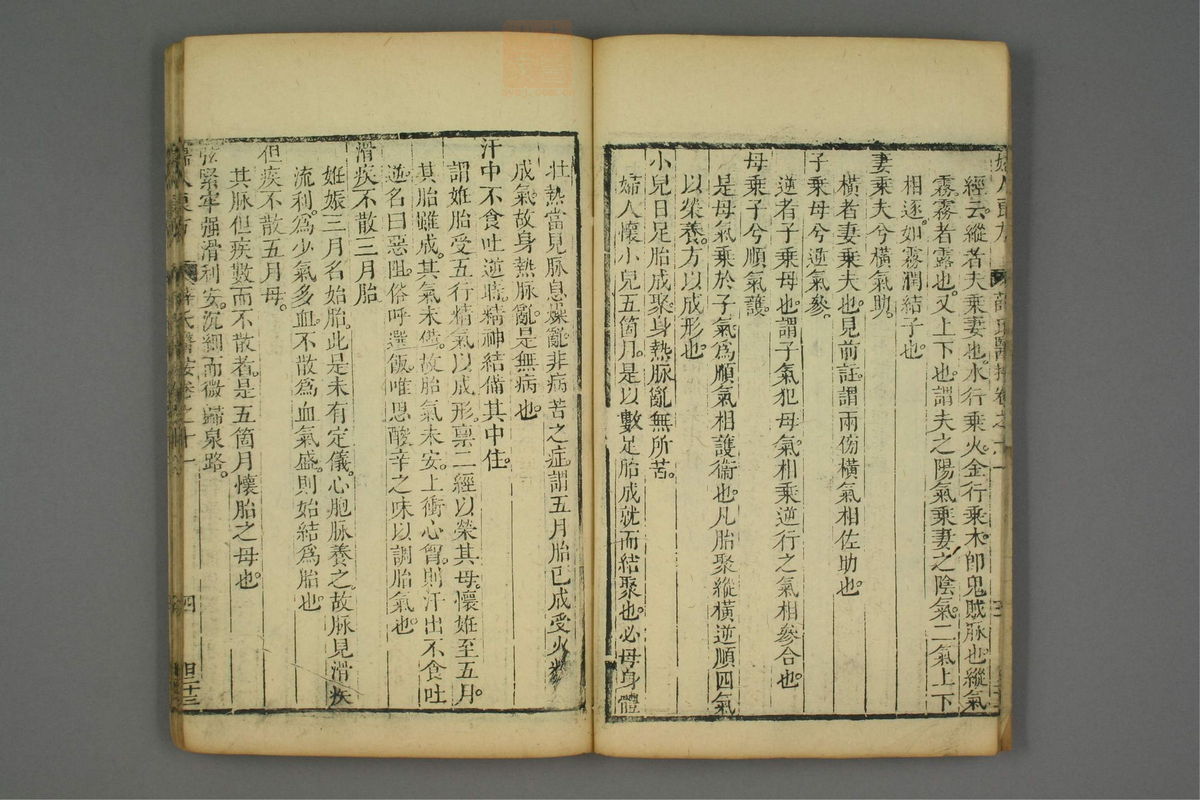 經云。縱者夫乘妻也。水行乘火。金行乘木。卽鬼賊脉也。縱氣
霧霧者露也。又上下也。謂夫之陽氣乘妻之陰氣。二氣上下
相逐。如霧潤結子也。
妻乘夫兮橫氣助。
橫者妻乘夫也。見前註。謂兩傍橫氣相佐助也。
子乘母兮逆氣參。
逆者子乘母也。謂子氣犯母氣。相乘逆行之氣相參合也。
母乘子兮順氣護。
是母氣乘於子氣爲順氣相護衞也。凡胎聚縱橫逆順四氣
以榮養。方以成形也。
小兒日足胎成聚。身熱脉亂無所苦。
婦人懷小兒五箇月。是以數足胎成就而結聚也。必母身體
壯熱。當見脉息躁亂。非病苦之症。謂五月胎已成受火精
成氣。故身熱脉亂。是無病也。
汗中不食吐逆時。精神結備其中住。
謂姙胎受五行精氣以成形。稟二經以榮其母。懷姙至五月。
其胎雖成。其氣未備。故胎氣未安。上衝心胷。則汗出不食吐
逆。名曰惡阻。俗呼選飯。唯思酸辛之味以調胎氣也。
滑疾不散三月胎
姙娠三月名始胎。此是未有定儀。心胞脉養之。故脉見滑疾
流利。爲少氣多血。不散爲血氣盛。則始結爲胎也。
但疾不散五月母。
其脉但疾數而不散者。是五箇月懷胎之母也。
弦緊牢强滑利安。沉細而微歸泉路。
四